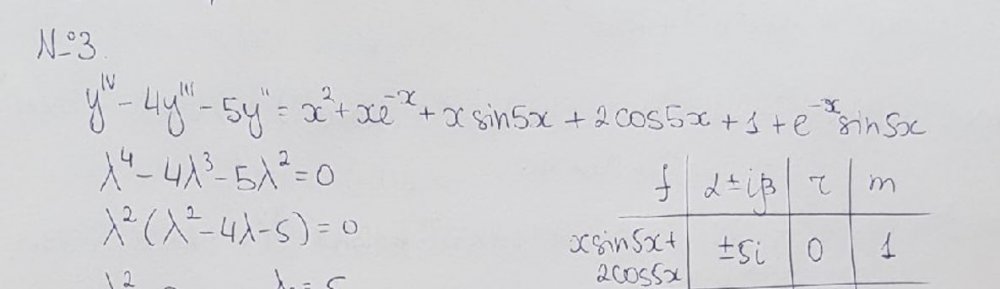 №3
y^IV - 4y''' - 5y'' = x² + xe^-x + x sin5x + 2cos5x + 1 + e^-x sin5x
λ⁴ - 4λ³ - 5λ² = 0
λ²(λ² - 4λ - 5) = 0
f | α ± iβ | r | m
x sin5x + 2cos5x | ±5i | 0 | 1